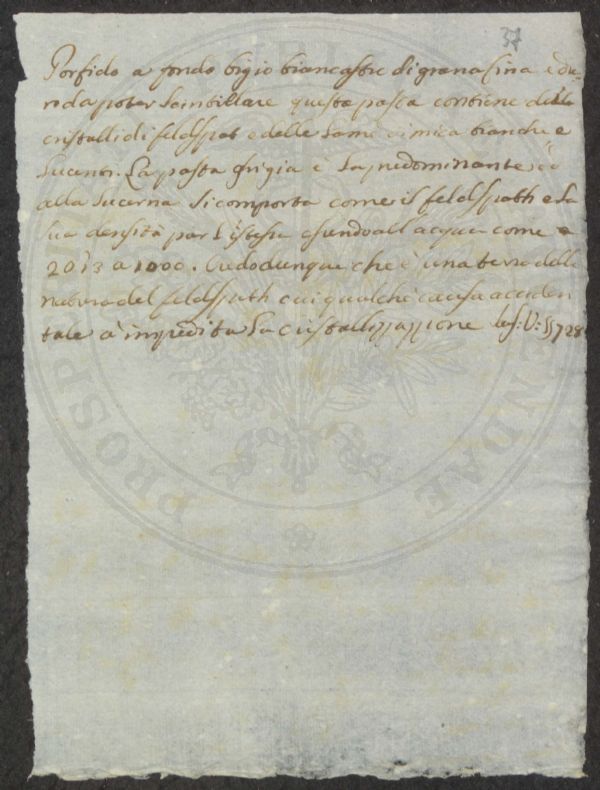 37
Porfido a fondo bigio biancastre di grana fina e du-
ro da poter scintillare questa pasta contiene delli
cristalli di feldspat e delle lame di mica bianche e
lucenti. La pasta grigia è la predominante, e
alla lucerna si comporta come il feldspath e la
sua densità par l'istessa essendo all'acqua come
2013 a 1000. Credo dunque che è una terra della
natura del feldspath cui qualche causa acciden
tale à impedita la cristallizzazione V: §§ 728
PROSP
ENDAE